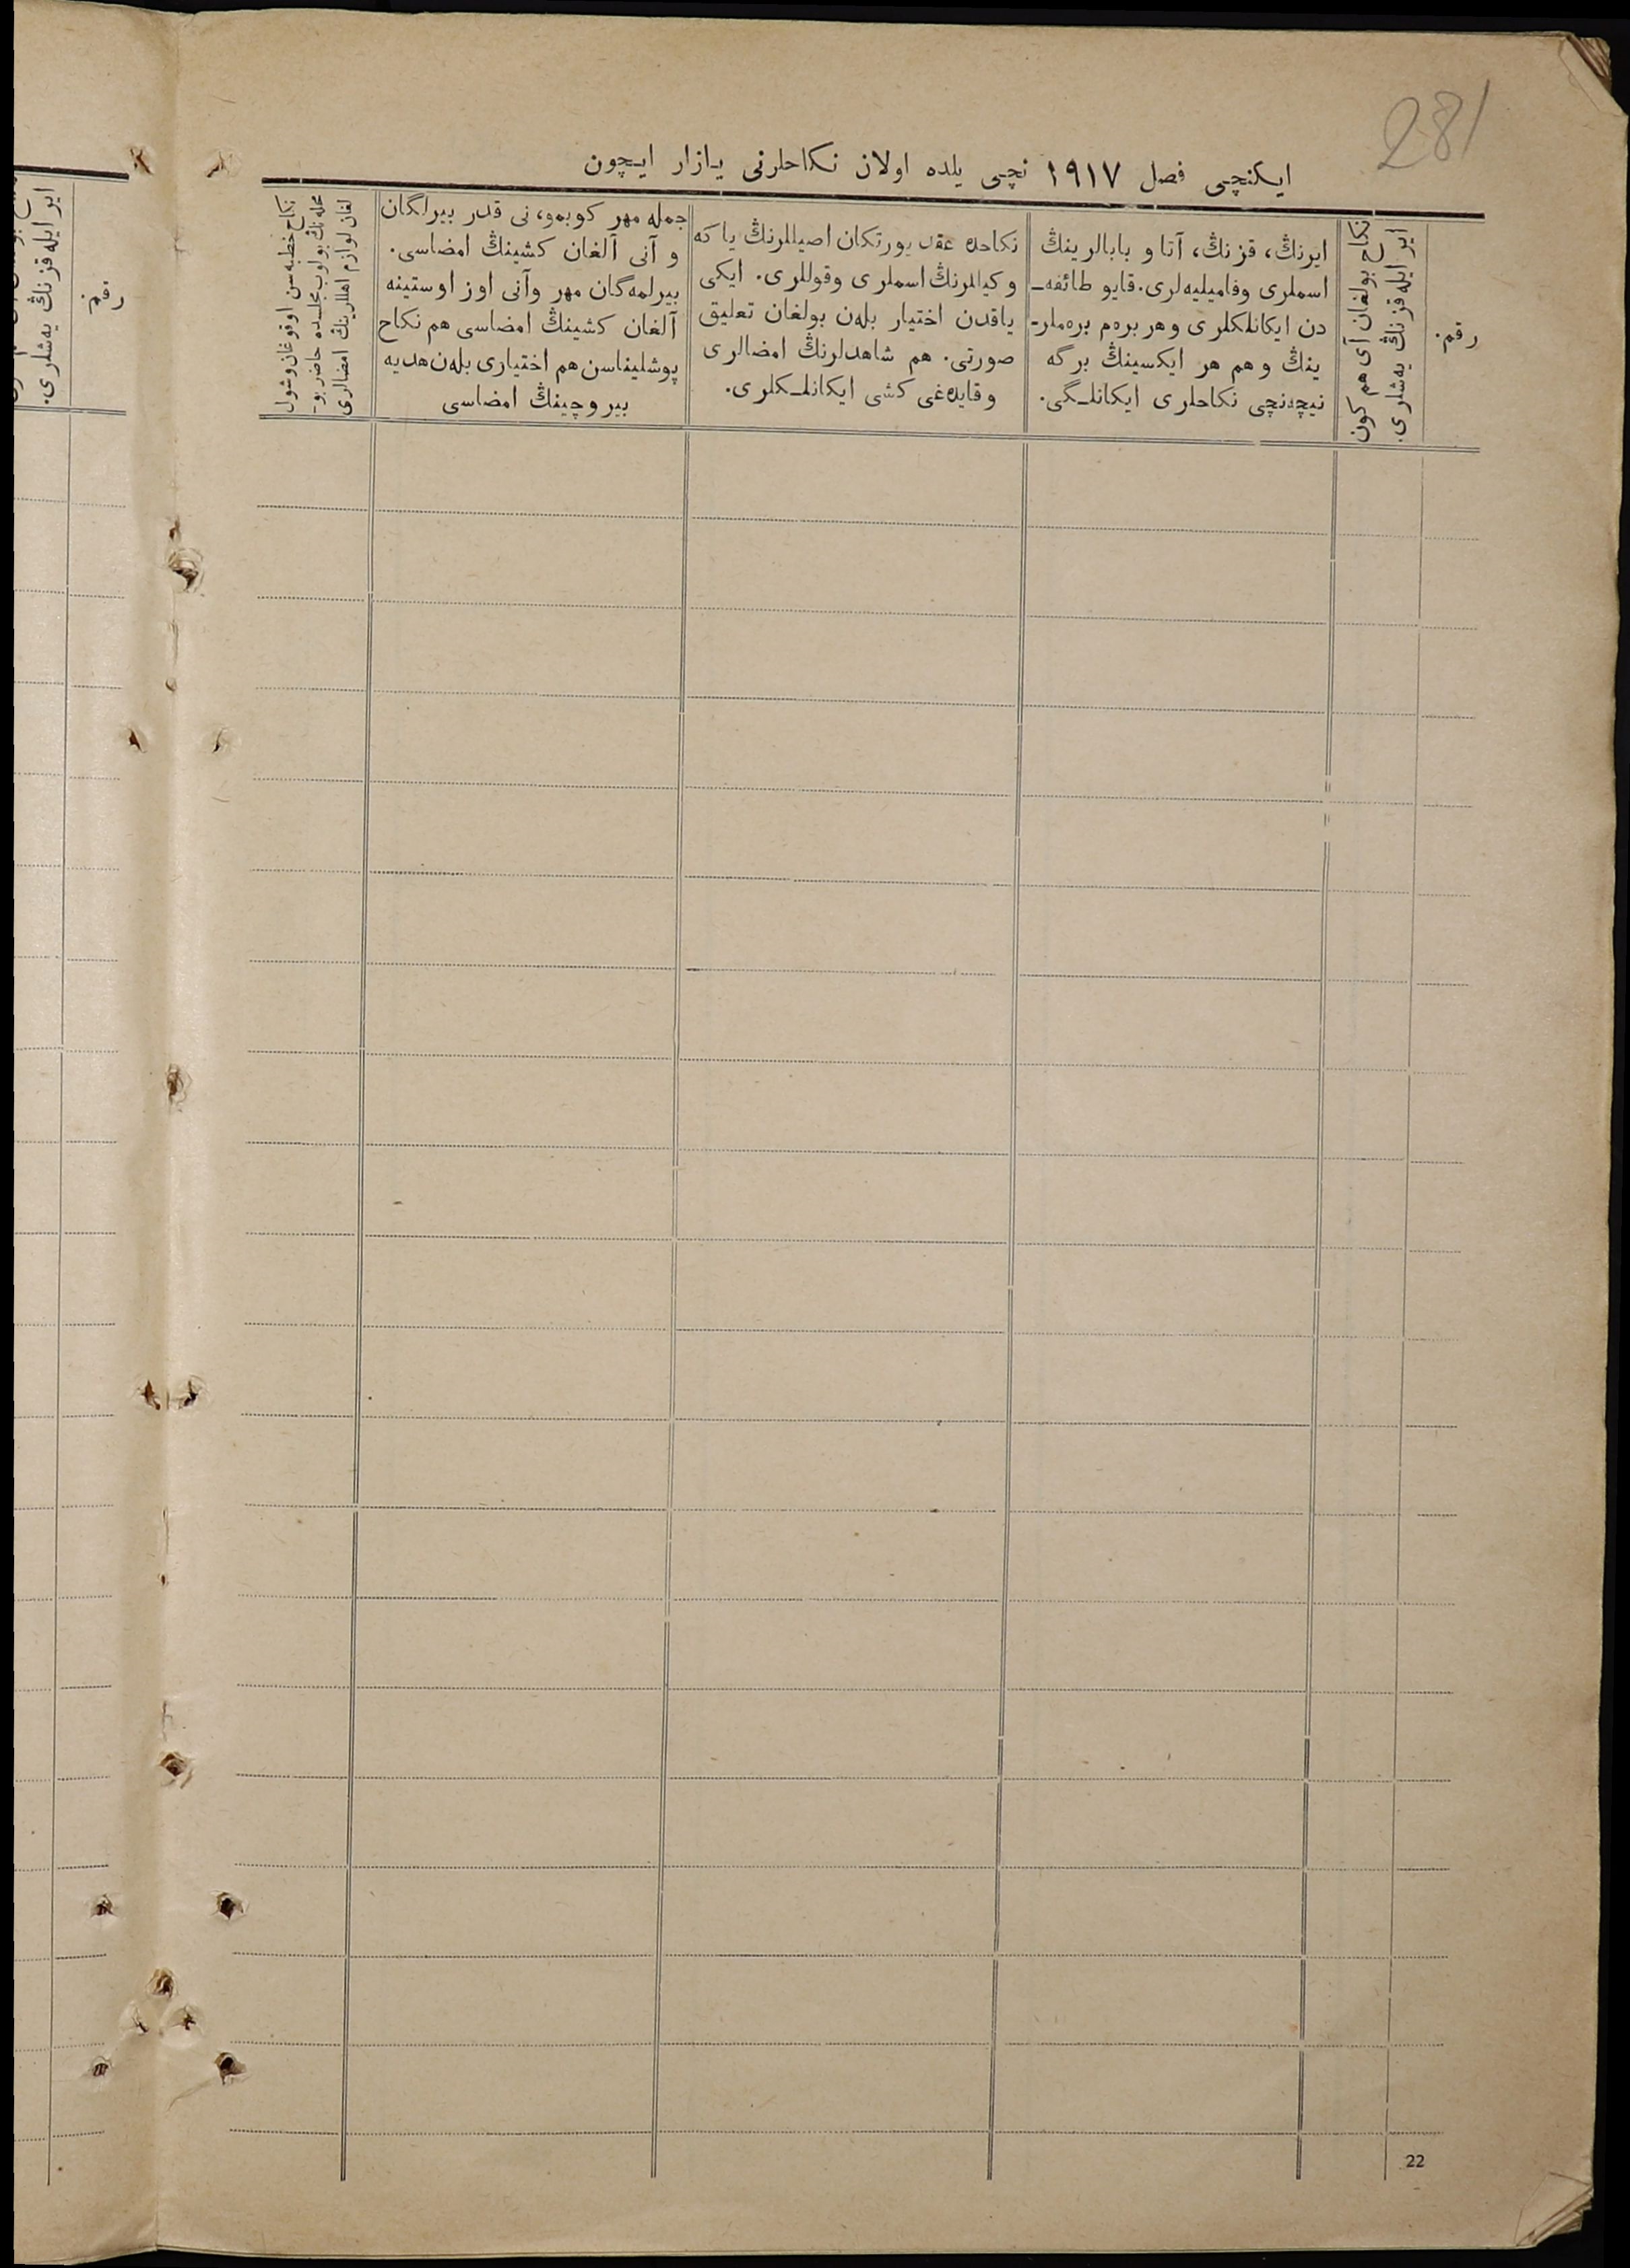 281
ایکنچی فصل ١٩١٧ نچی یلده اولان نکاحلرنی یازار ایچون
رقم.
ایر ایله قزنڭ یه‌شلری.
نکاح بولغان آی هم کون
ایرنڭ، قزنڭ، آتا و بابالرینڭ
اسملری وفامیلیه‌لری. قایو طائفه‌ـ
دن ایکانلکلری وهر بره‌م بره‌ملر-
ینڭ وهم هر ایکسینڭ برگه
نیچه‌نچی نکاحلری ایکانلـگی.
نکاحده عقد یورتکان اصیللرنڭ یا که
وکیللرنڭ اسملری وقوللری. ایکی
یاقدن اختیار بله‌ن بولغان تعلیق
صورتی. هم شاهدلرنڭ امضالری
وقایده‌غی کشی ایکانلـکلری.
جمله مهر کوبمو، نی قدر بیرلگان
و آنی آلغان کشینڭ امضاسی.
بیرلمه‌گان مهر وآنی اوز اوستینه
آلغان کشینڭ امضاسی هم نکاح
پوشلیناسن هم اختیاری بله‌ن هدیه
بیروچینڭ امضاسی
نکاح خطبه‌سن اوقوغان وشول
محله‌نڭ بولوب مجلسده حاضر بو-
لغان لوازم اهللرینڭ امضالری
رقم.
ایر ایله قزنڭ یه‌شلری.
22